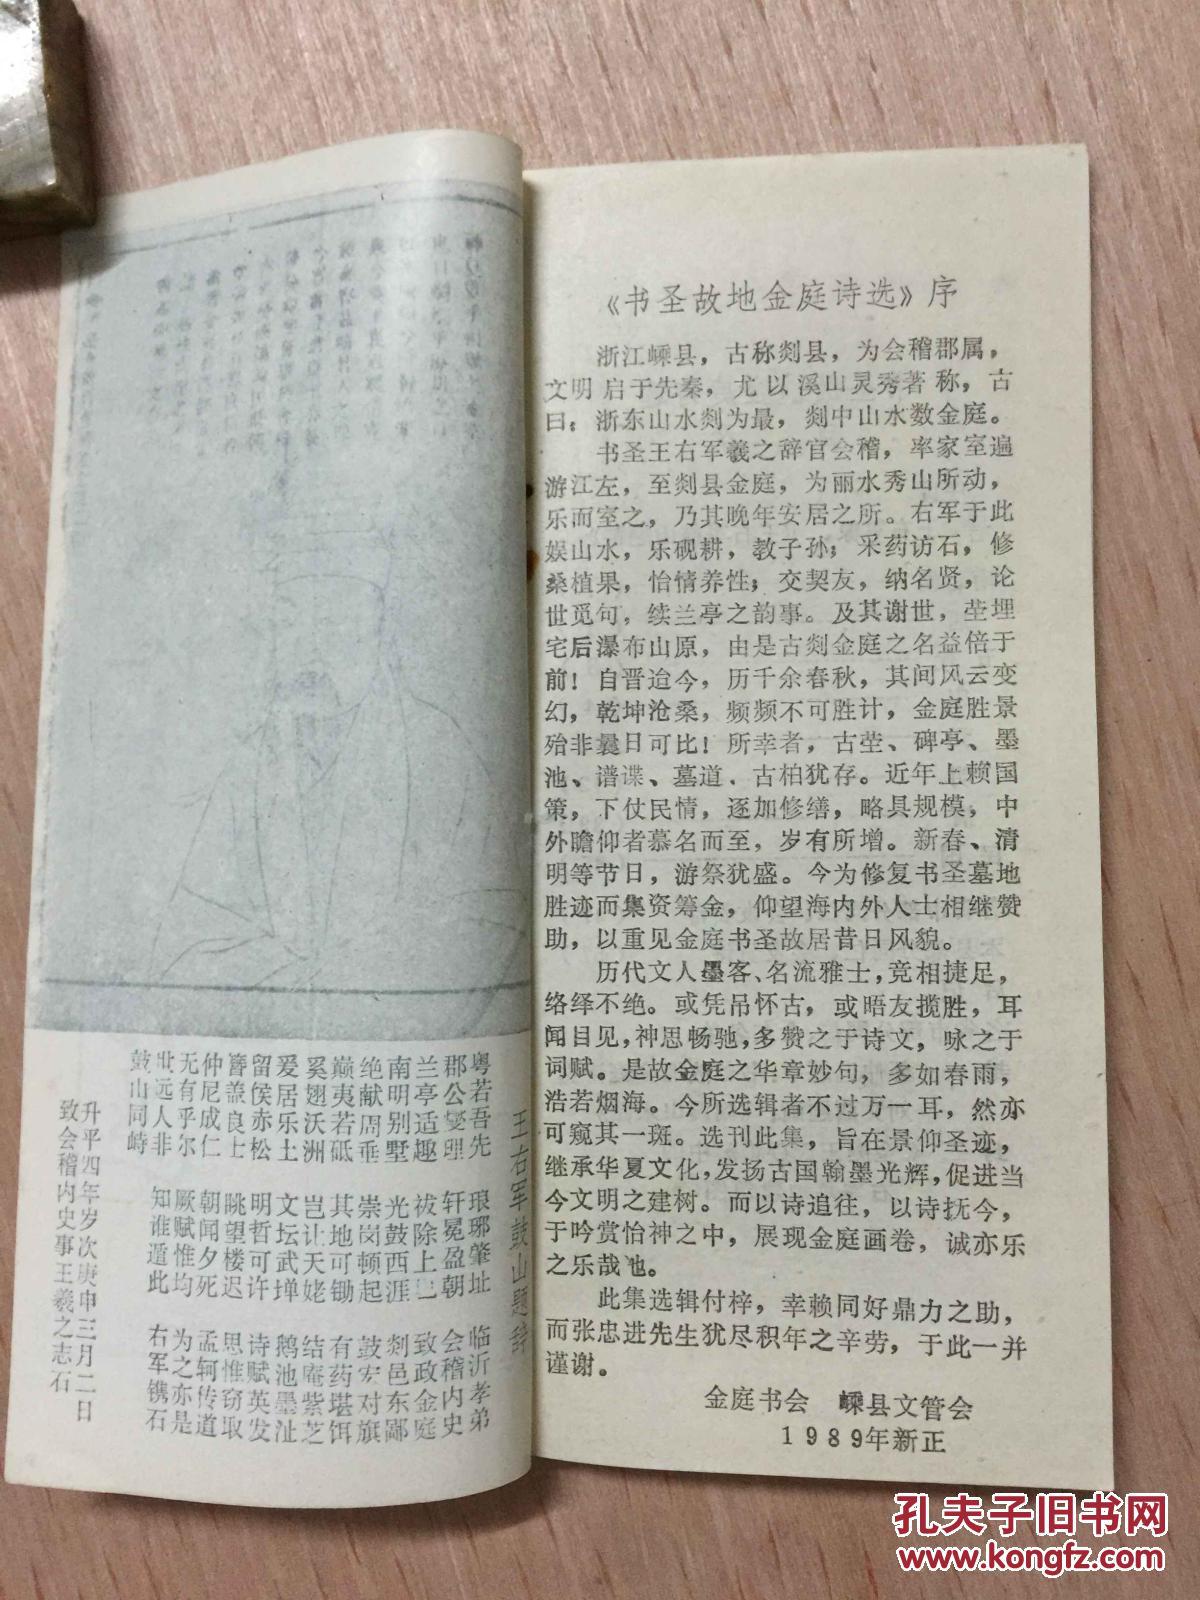 《书圣故地金庭诗选》序
浙江嵊县，古称剡县，为会稽郡属，
文明启于先秦，尤以溪山灵秀著称，古
曰：浙东山水剡为最，剡中山水数金庭。
书圣王右军羲之辞官会稽，率家室遍
游江左，至剡县金庭，为丽水秀山所动，
乐而室之，乃其晚年安居之所。右军于此
娱山水，乐砚耕，教子孙；采药访石，修
桑植果，怡情养性；交契友，纳名贤，论
世觅句，续兰亭之韵事。及其谢世，茔埋
宅后瀑布山原，由是古剡金庭之名益倍于
前！自晋迨今，历千余春秋，其间风云变
幻，乾坤沧桑，频频不可胜计，金庭胜景
殆非曩日可比！所幸者，古茔、碑亭、墨
池、谱谍、墓道、古柏犹存。近年上赖国
策，下仗民情，逐加修缮，略具规模，中
外瞻仰者慕名而至，岁有所增。新春、清
明等节日，游祭犹盛。今为修复书圣墓地
胜迹而集资筹金，仰望海内外人士相继赞
助，以重见金庭书圣故居昔日风貌。
历代文人墨客、名流雅士，竞相捷足，
络绎不绝。或凭吊怀古，或晤友揽胜，耳
闻目见，神思畅驰，多赞之于诗文，咏之于
词赋。是故金庭之华章妙句，多如春雨，
浩若烟海。今所选辑者不过万一耳，然亦
可窥其一斑。选刊此集，旨在景仰圣迹，
继承华夏文化，发扬古国翰墨光辉，促进当
今文明之建树。而以诗追往，以诗抚今，
于吟赏怡神之中，展现金庭画卷，诚亦乐
之乐哉也。
此集选辑付梓，幸赖同好鼎力之助，
而张忠进先生犹尽积年之辛劳，于此一并
谨谢。
金庭书会 嵊县文管会
1989年新正
王右军鼓山题辞
粤若吾先 琅琊肇址 临沂孝弟
郡公燮理 轩冕盈朝 会稽内史
兰亭适趣 祓除上巳 致政金庭
南明别墅 光鼓西涯 剡邑东鄙
绝献周垂 崇岗顿起 鼓宏对旗
巅夷若砥 其地可锄 有药堪饵
奚翅沃洲 岂让天姥 结庵紫芝
爰居乐土 文坛武墠 鹅池墨沚
留侯赤松 明哲可许 诗赋英发
簪盖良士 眺望楼迟 思惟窃取
仲尼成仁 朝闻夕死 孟轲传道
无有乎尔 厥赋惟均 为之亦是
世远人非 知谁遁此 右军镌石
鼓山同峙
升平四年岁次庚申三月二日
致会稽内史事王羲之志石
孔夫子旧书网
www.kongfz.com